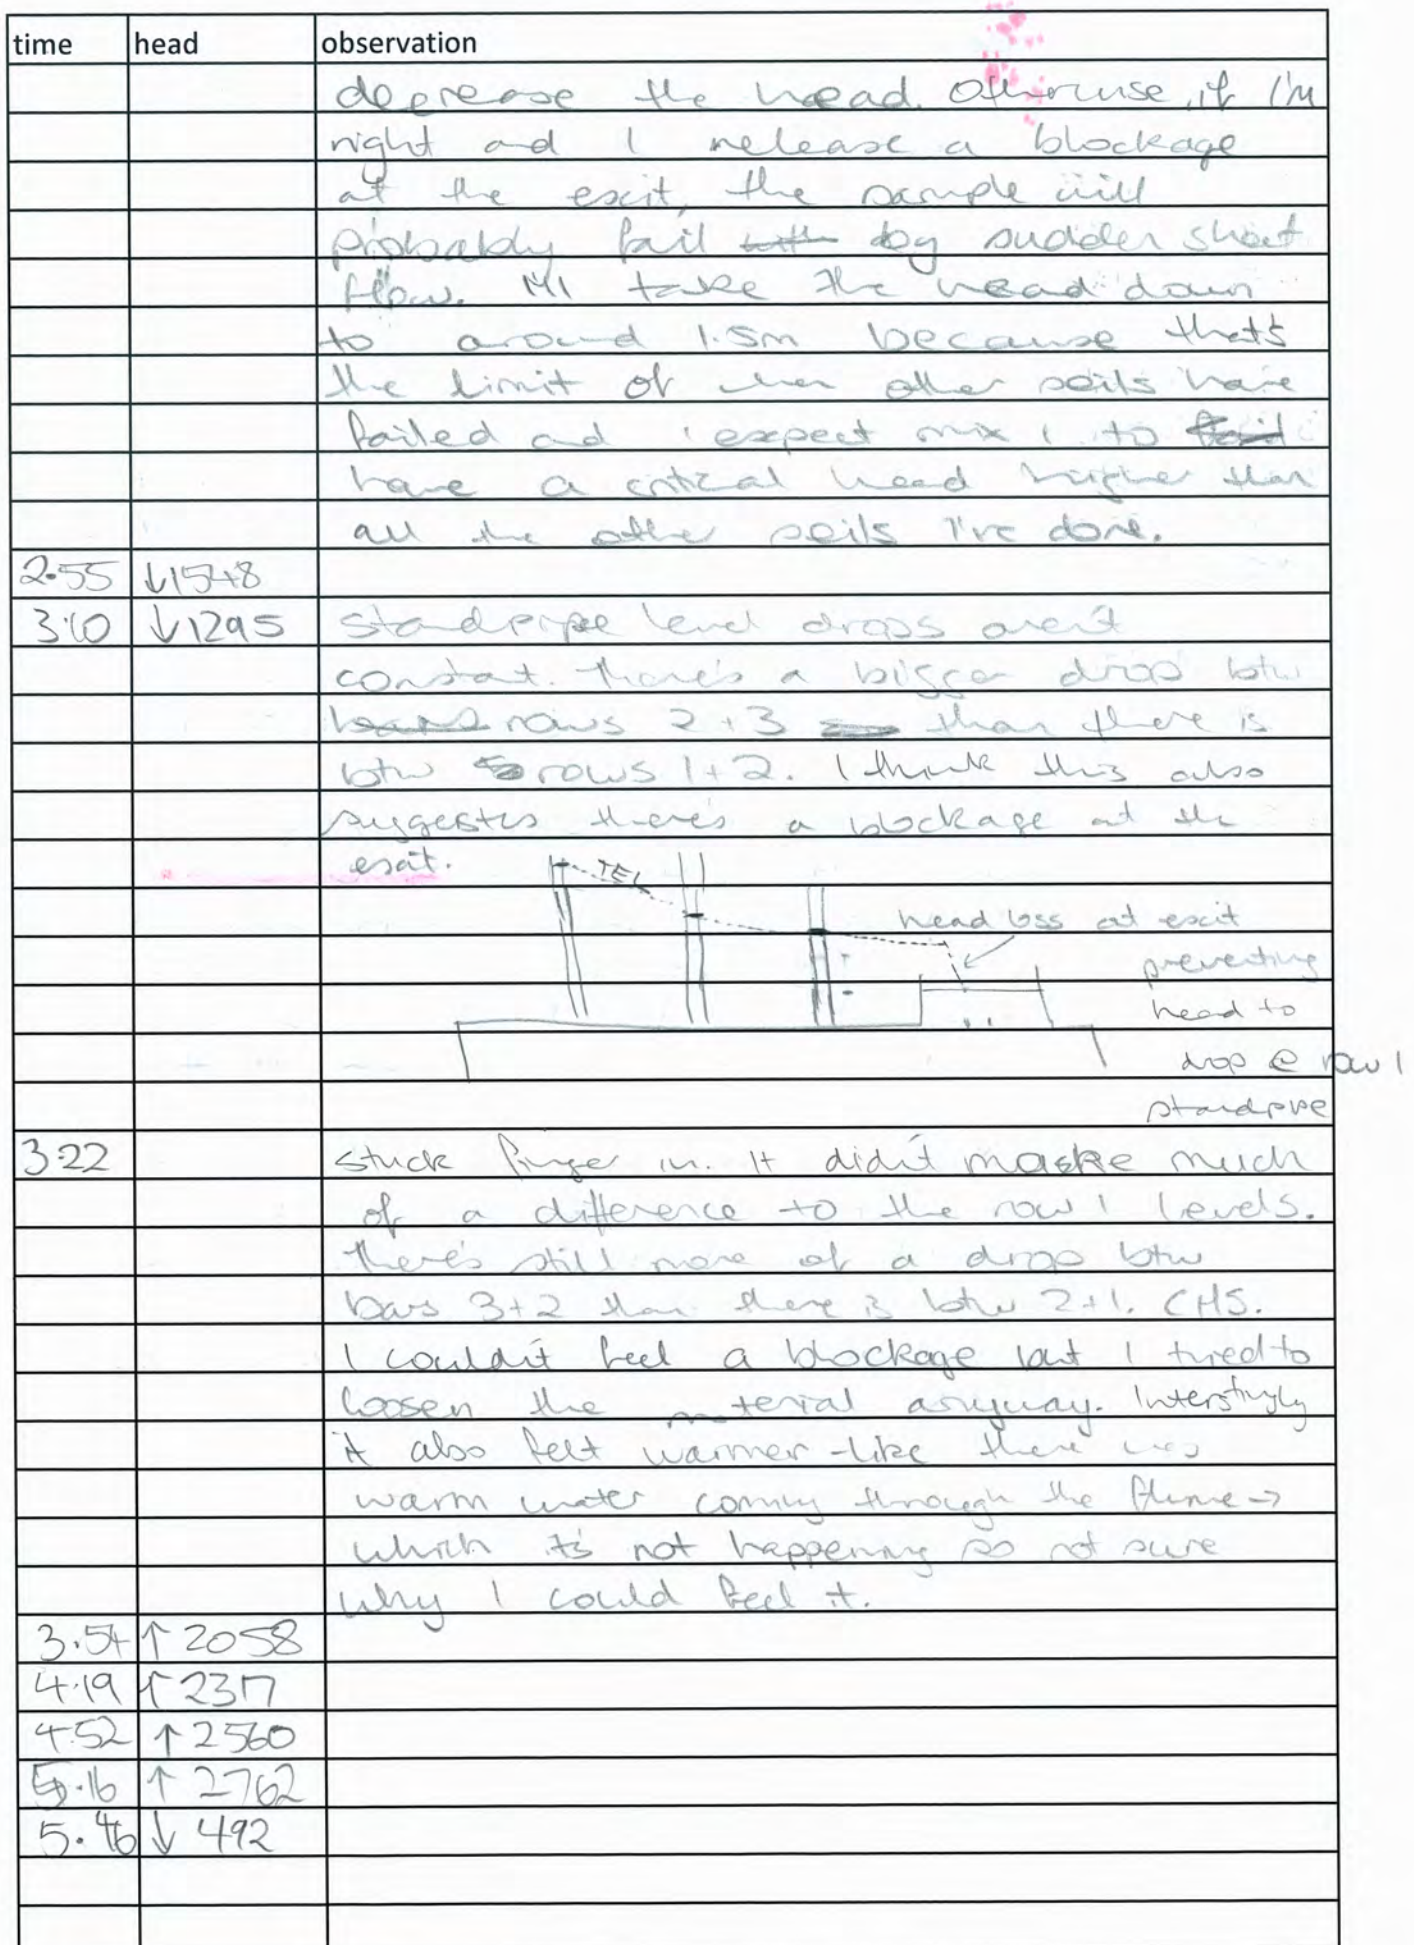 time head observation
decrease the head. Otherwise, if I'm
right and I release a blockage
at the exit, the sample will
probably fail by sudden short
flow. I'll take the head down
to around 1.5m because that's
the limit of when other soils have
failed and I expect mix 1 to
have a critical head higher than
all the other soils I've done.
2.55 ↓1548
3:10 ↓1295 standpipe level drops aren't
constant. There's a bigger drop btw
rows 2+3 than there is
btw rows 1+2. I think this also
suggests there's a blockage at the
exit.
TEL
head loss at exit
preventing
head to
drop @ row 1
standpipe
3:22 stuck finger in. It didn't make much
of a difference to the row 1 levels.
There's still more of a drop btw
bars 3+2 than there is btw 2+1. CHS.
I couldn't feel a blockage but I tried to
loosen the material anyway. Interstingly
it also felt warmer - like there was
warm water coming through the flume →
which it's not happening so not sure
why I could feel it.
3.54 ↑ 2058
4.19 ↑ 2317
4.52 ↑ 2560
5.16 ↑ 2762
5.46 ↓ 492